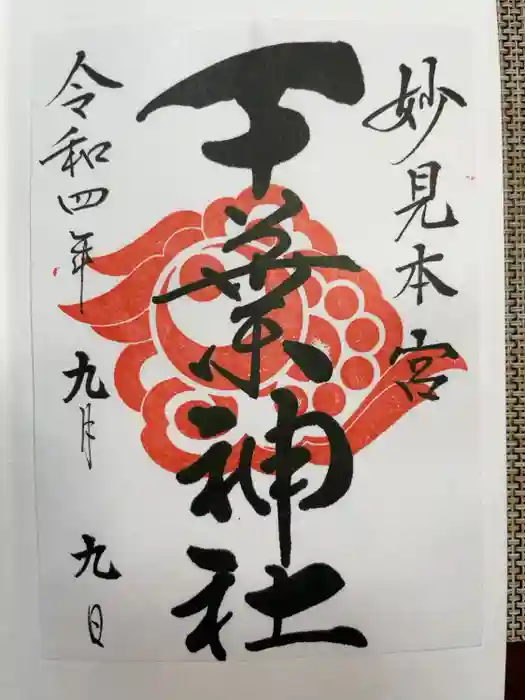 妙見本宮
千葉神社
令和四年 九月 九日